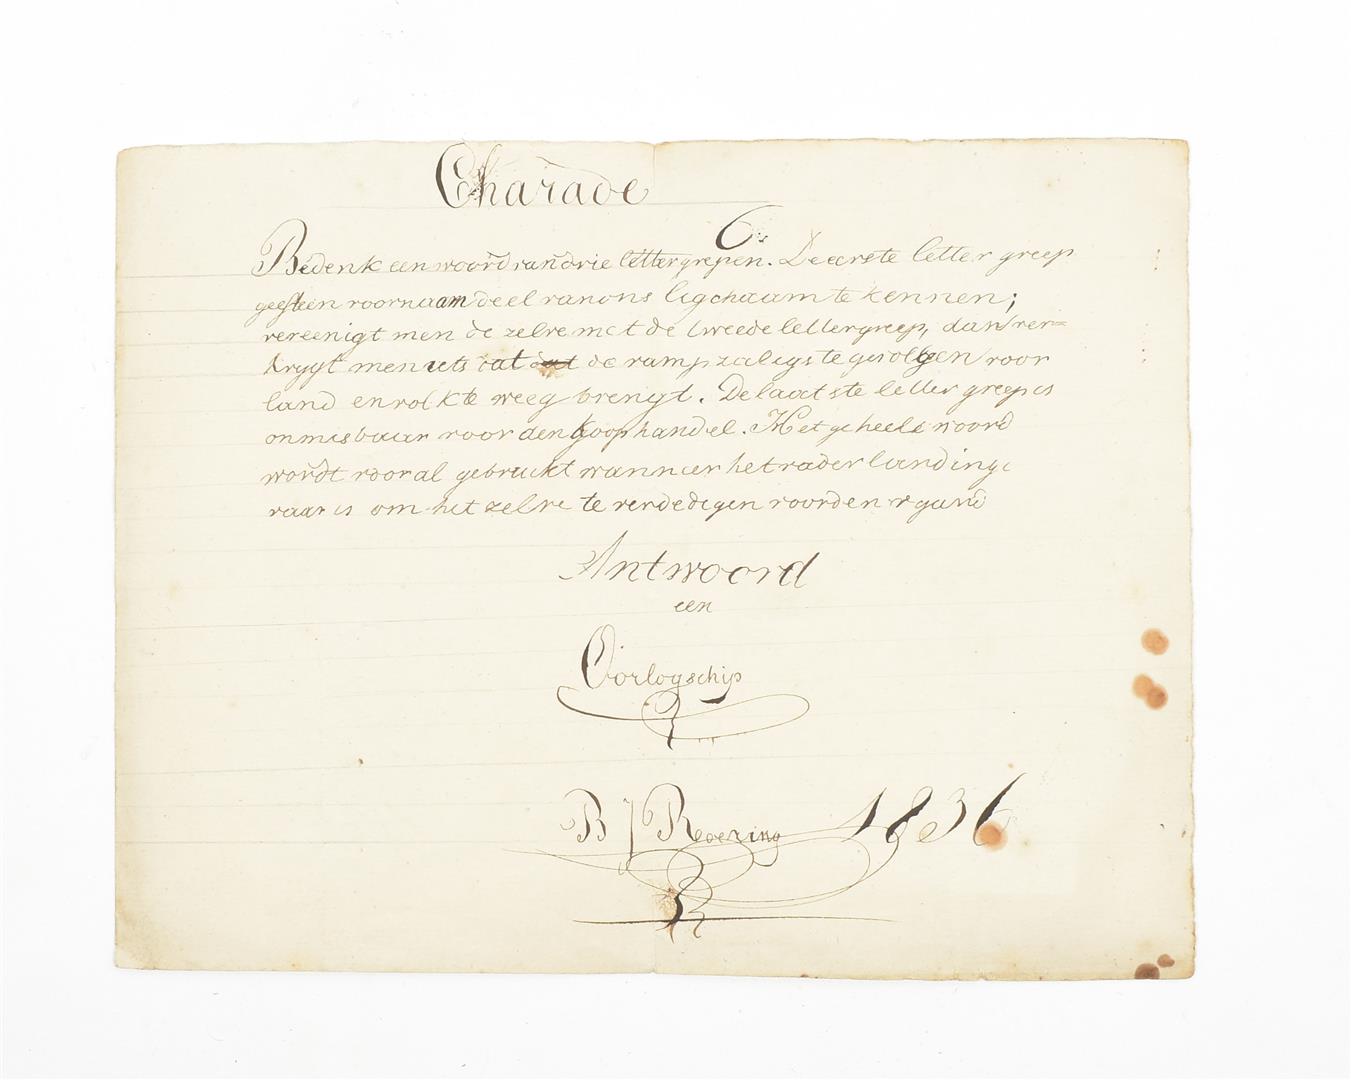 Charade
6
Bedenk een woord van drie lettergrepen. De eerste letter greep
geeft een voornaam deel van ons ligchaam te kennen;
vereenigt men de zelve met de tweede lettergreep, dan ver=
krygt men iets dat dat de rampzaligste gevolgen voor
land en volk te weeg brengt. De laatste letter greep is
onmisbaar voor den koophandel. Het geheele woord
wordt vooral gebruikt wanneer het vaderland in ge
vaar is om het zelve te verdedigen voor den vyand
Antwoord
een
Oorlogschip
B J Roering 1836